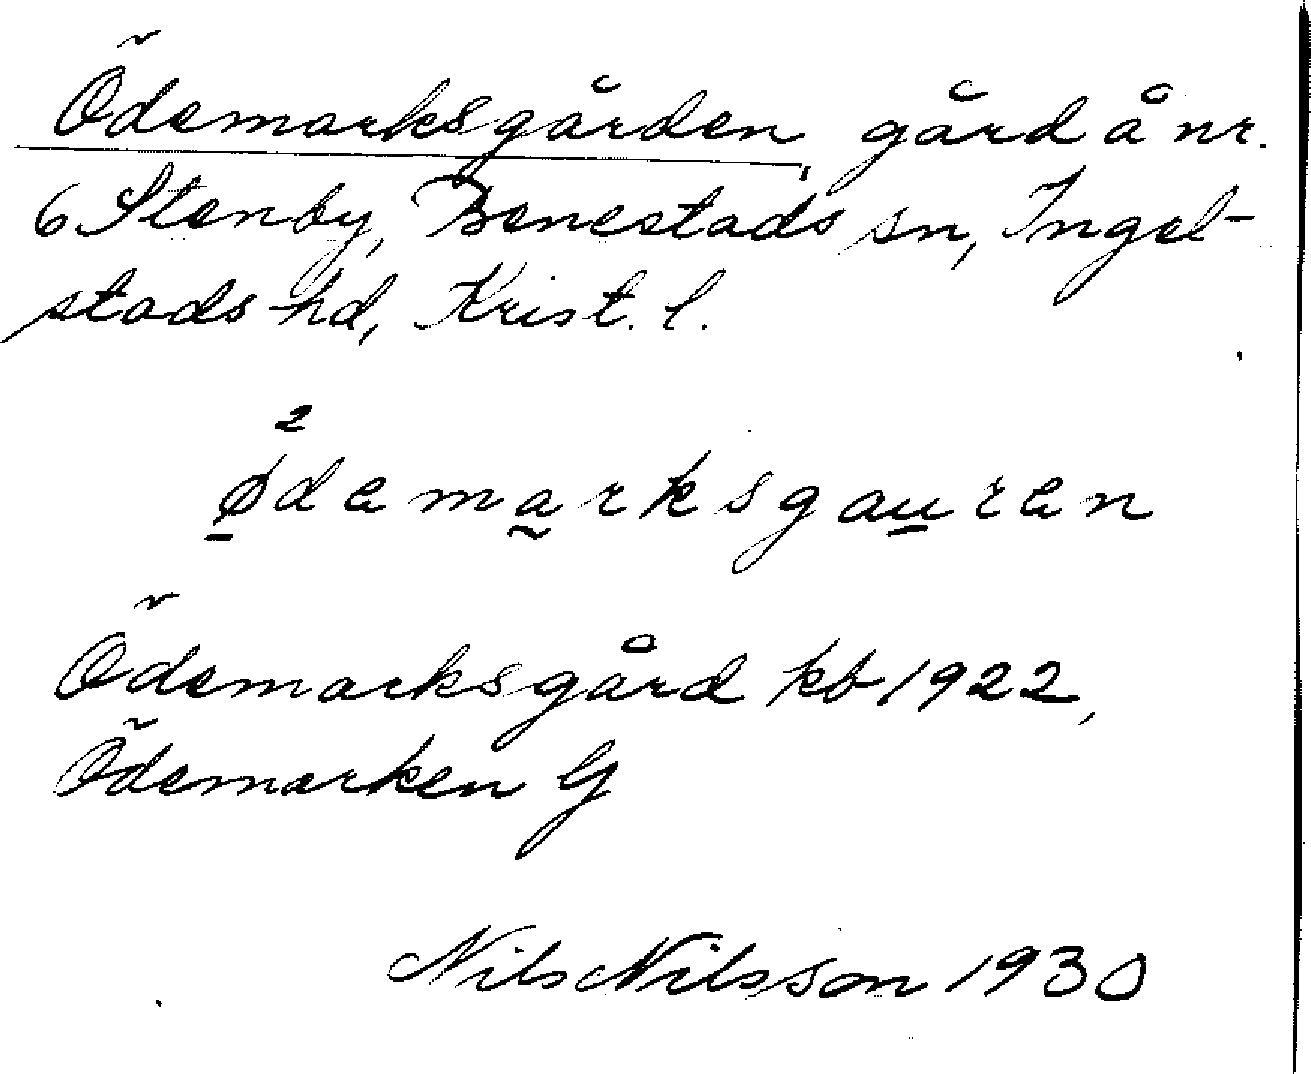 Ödemarksgården, gård å nr.
6 Stenby, Benestads sn, Ingel-
stads hd, Krist. l.
2
ø̱demа̰rksgau̱ren
Ödemarksgård kb 1922,
Ödemarken G
Nils Nilsson 1930